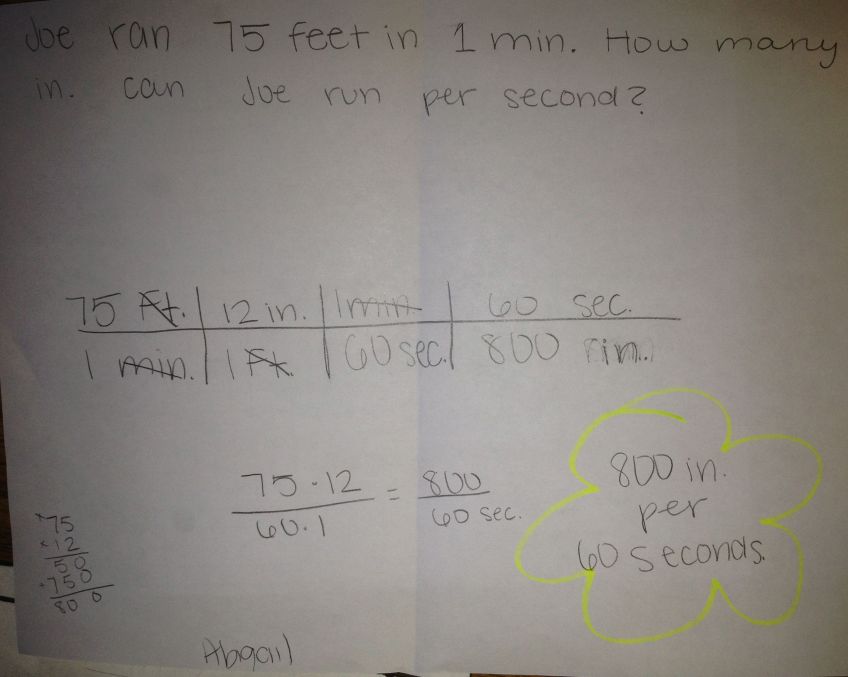 Joe ran 75 feet in 1 min. How many
in. can Joe run per second?
75 ft. | 12 in. | 1 min | 60 sec.
1 min. | 1 ft. | 60 sec. | 800 in.
75 · 12 = 800
60 · 1 60 sec.
800 in.
per
60 seconds.
75
×12
50
+750
800
Abgail